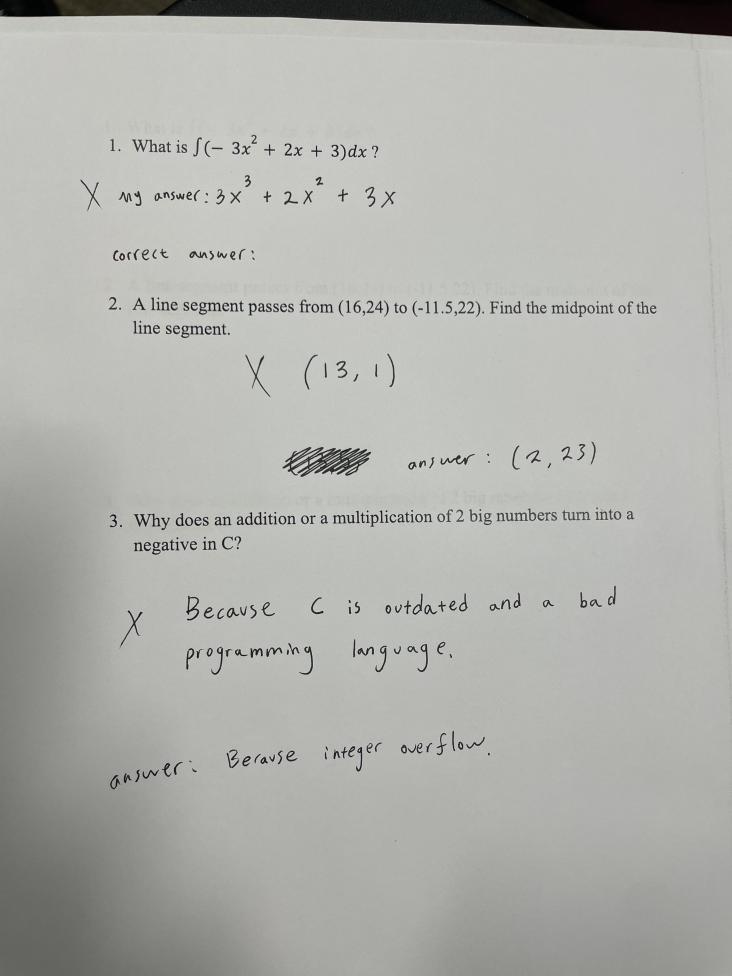 1. What is ∫(− 3x² + 2x + 3)dx ?
X My answer: 3x³ + 2x² + 3x
correct answer:
2. A line segment passes from (16,24) to (-11.5,22). Find the midpoint of the
line segment.
X (13, 1)
answer: (2, 23)
3. Why does an addition or a multiplication of 2 big numbers turn into a
negative in C?
X Because C is outdated and a bad
programming language.
answer: Because integer overflow.